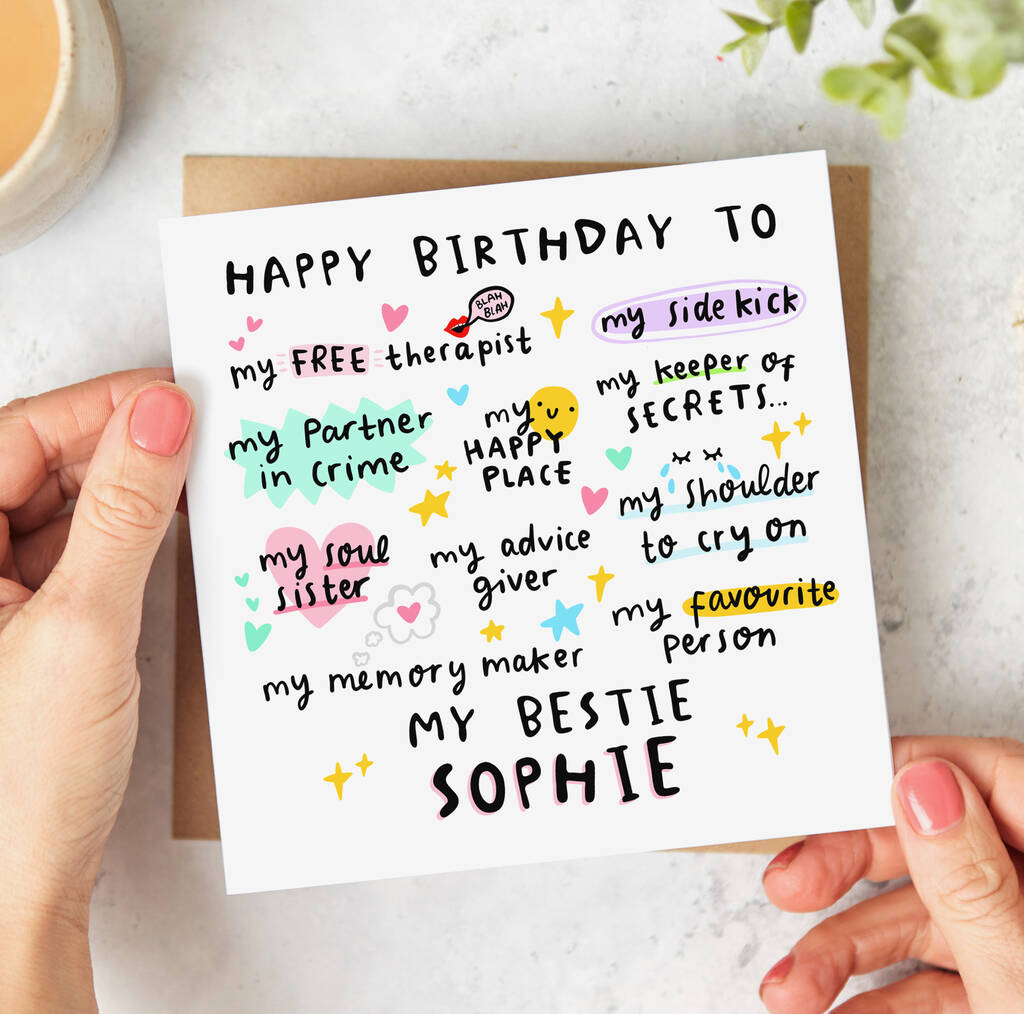 HAPPY BIRTHDAY TO
BLAH
BLAH
my FREE therapist
my side kick
my partner
in crime
my
HAPPY
PLACE
my keeper of
SECRETS...
my soul
sister
my advice
giver
my shoulder
to cry on
my memory maker
my favourite
person
MY BESTIE
SOPHIE